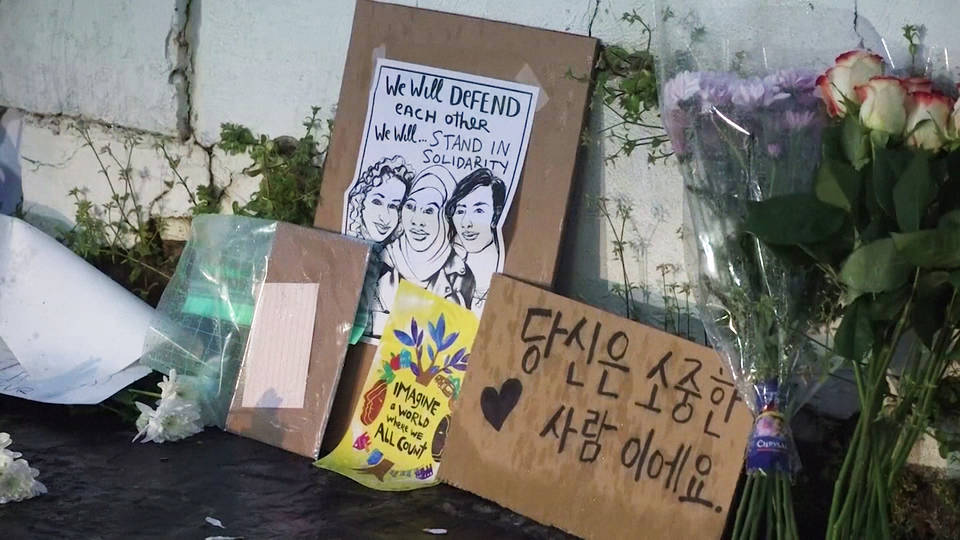 We Will DEFEND
each other
We Will... STAND IN
SOLIDARITY
IMAGINE
a WORLD
where WE
ALL COUNT
당신은 소중한
사람이에요.